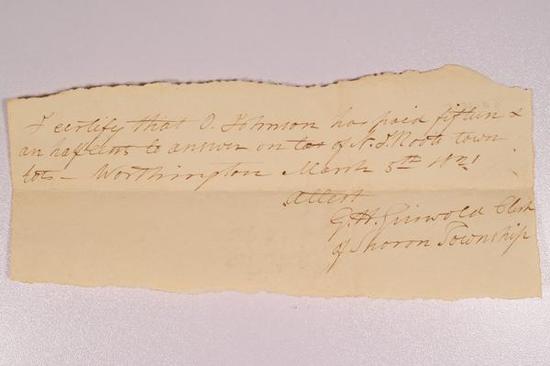 I certify that O. Johnson has paid fifteen &
an half cents to answer on tax of N. J. Roots town
lots — Worthington March 5th 1821
Attest
G. H. Griswold Clerk
of Sharon Township